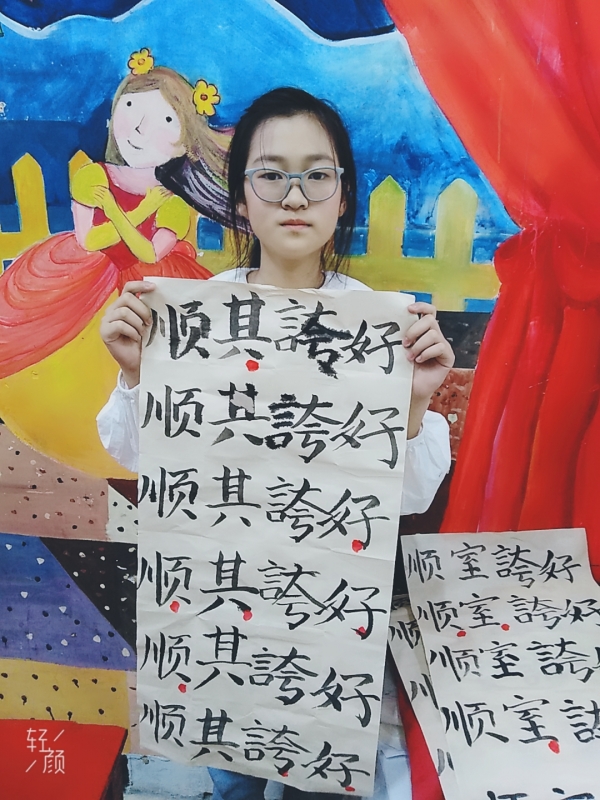 顺其誇好
顺其誇好
顺其誇好
顺其誇好
顺其誇好
顺其誇好
顺室誇好
顺室誇好
顺室誇
顺室誇
轻
颜